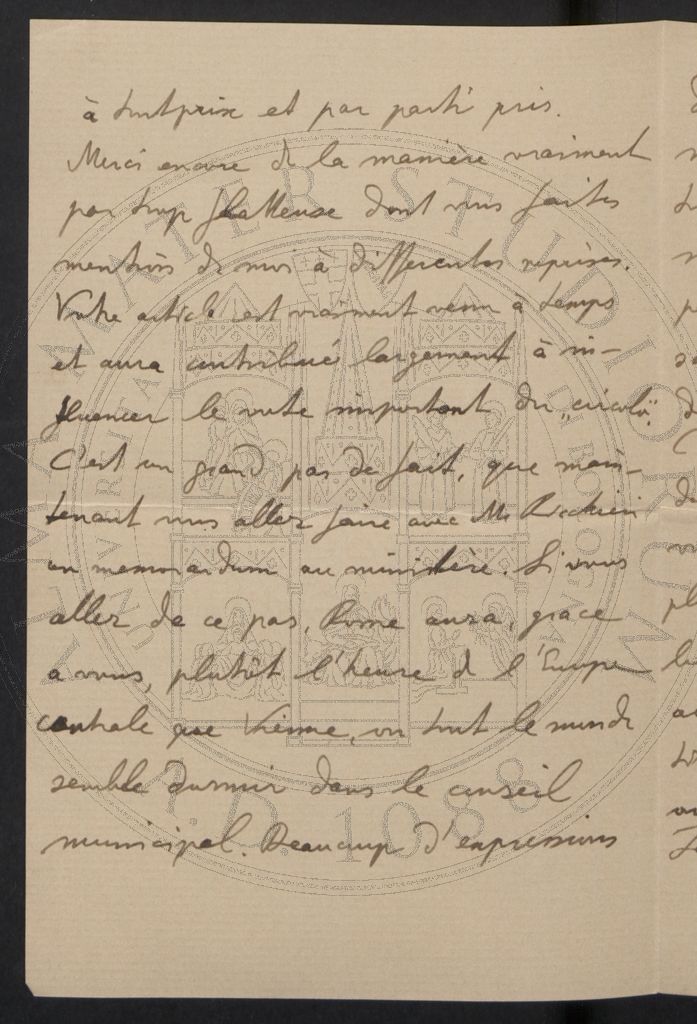 à tout prix et par parti pris.
Merci encore de la manière vraiment
par trop flatteuse dont vous faites
mentions de moi à differentes reprises.
Votre article est vraiment venu à temps
et aura contribué largement à in-
fluencer le vote important du „circolo".
C'est un grand pas de fait, que main-
tenant vous allez faire avec Mr Ricchieri
un memorandum au ministère. Si vous
allez de ce pas, Rome aura, grace
a vous, plutôt l'heure de l'Europe
centrale que Vienne, ou tout le monde
semble dormir dans le conseil
municipal. Beaucoup d'expressions
ALMA MATER STUDIORUM
A.D. 1088